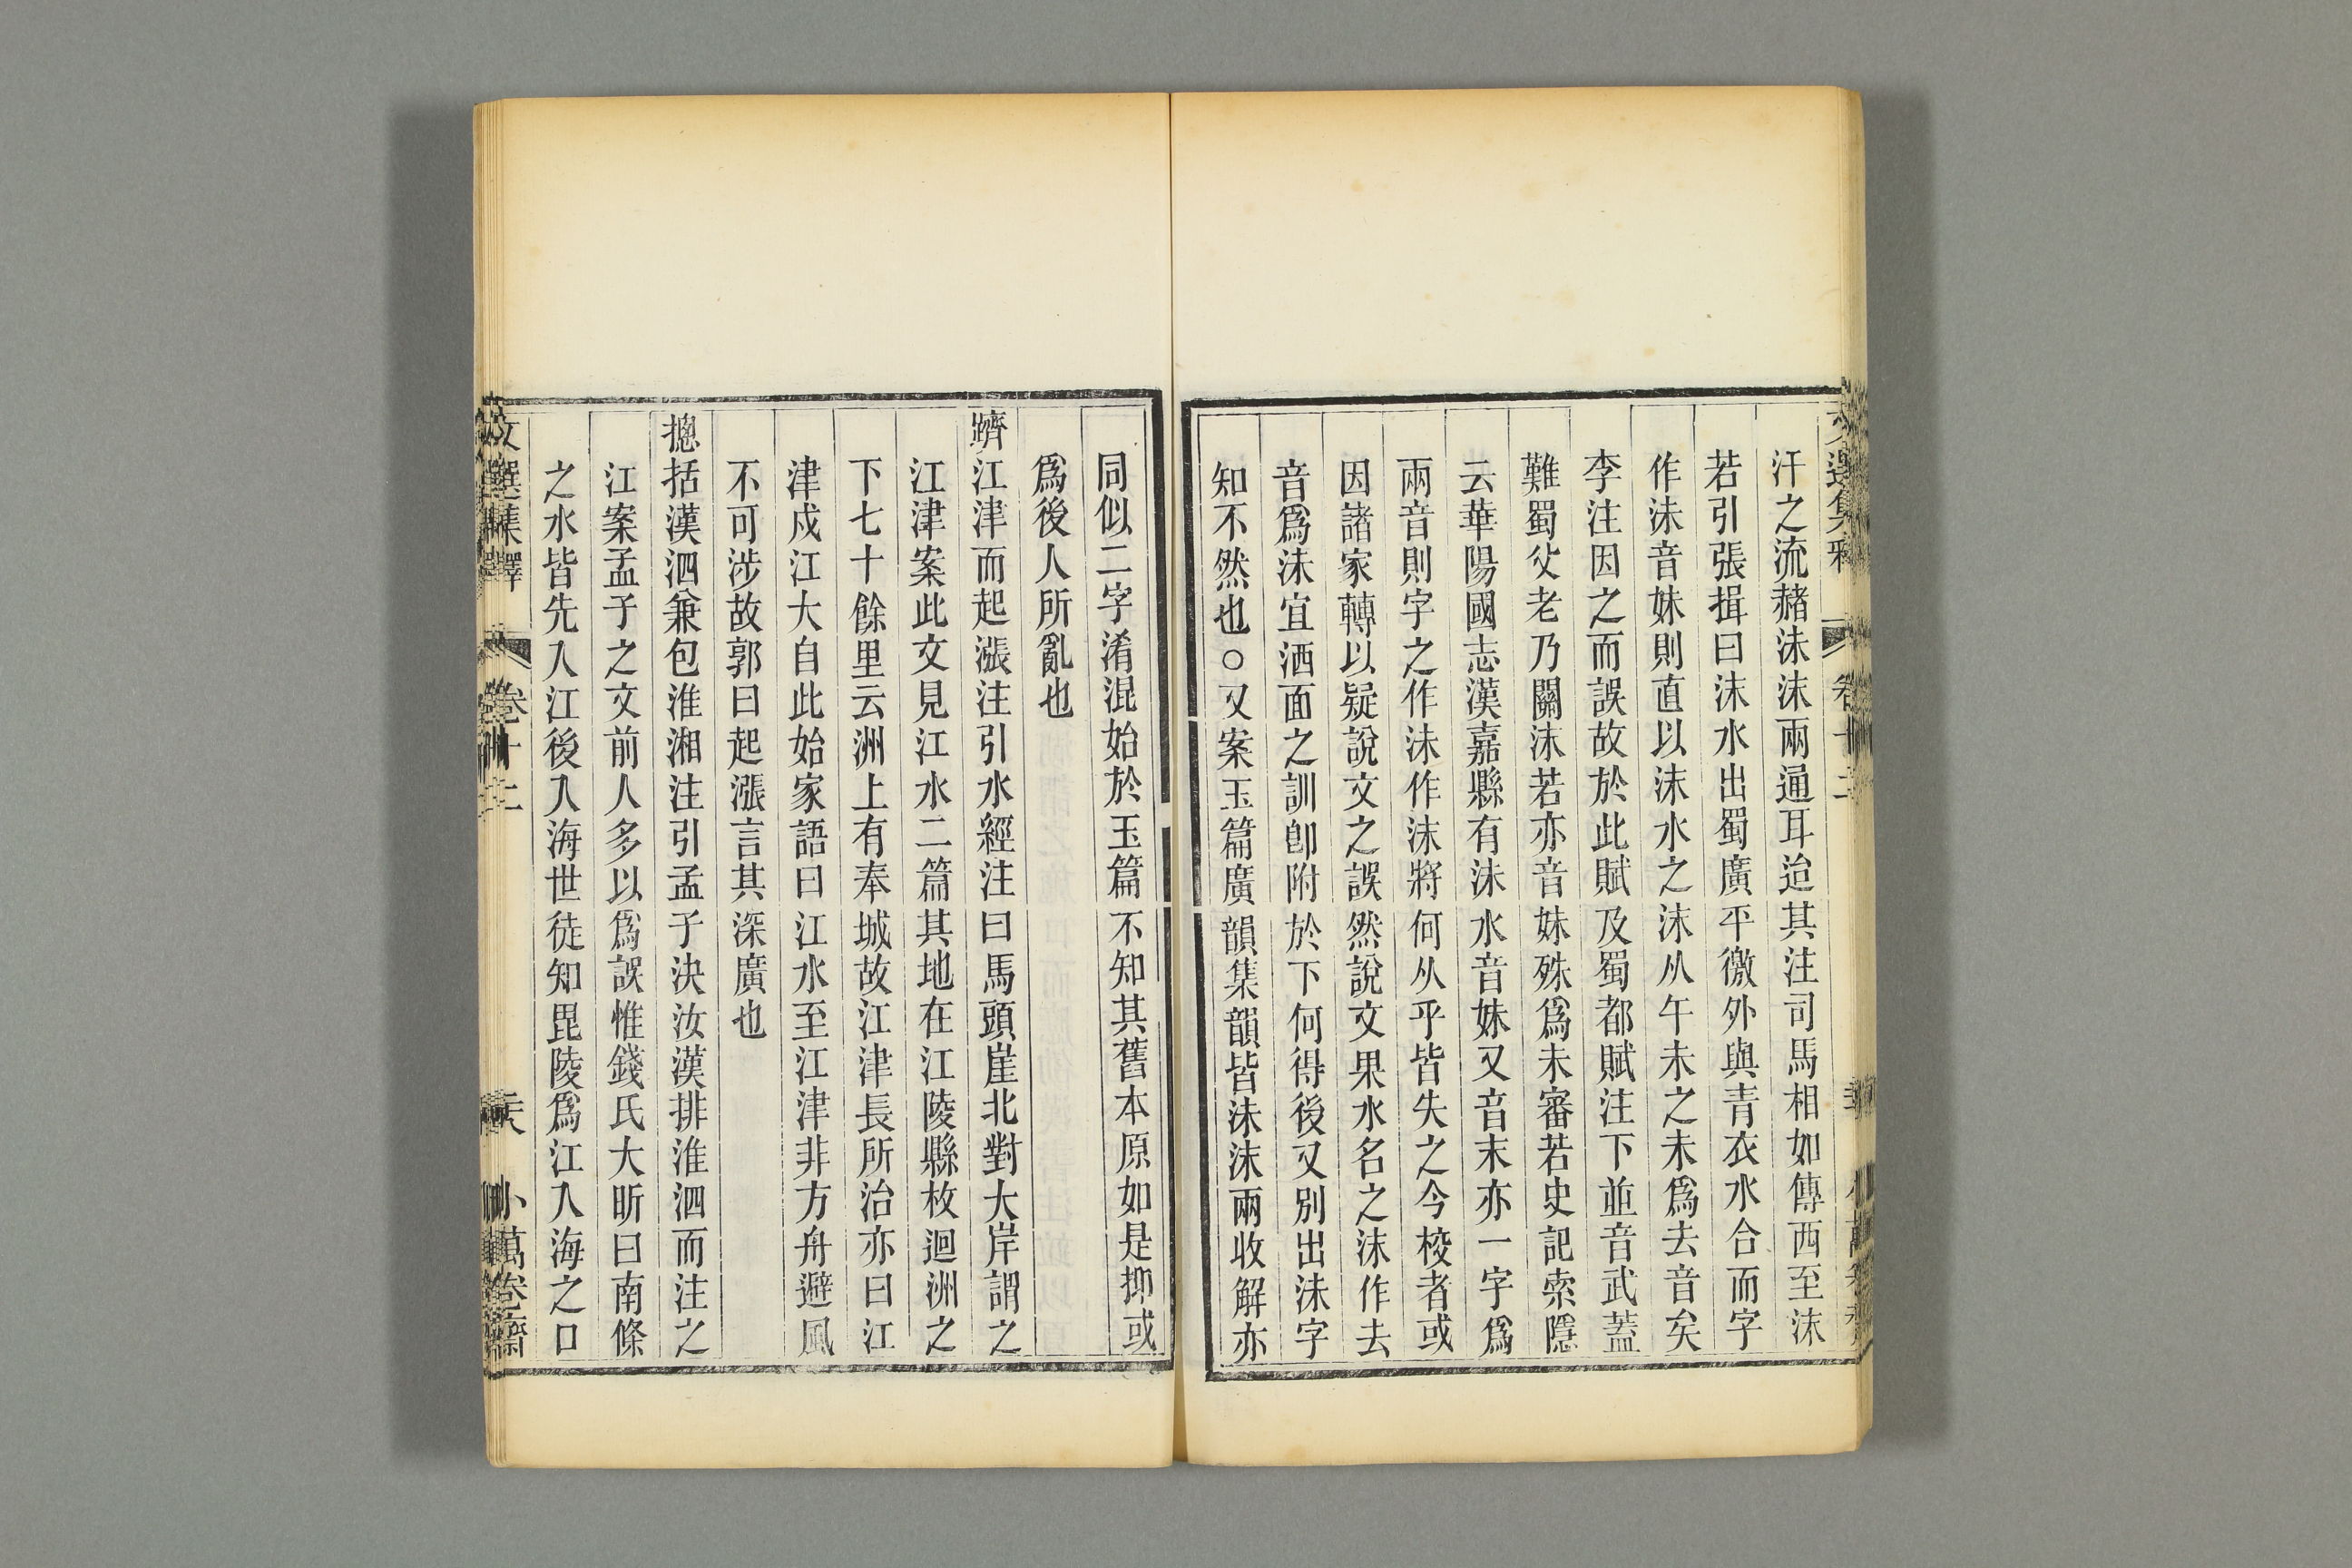 汗之流赭沬沫兩通耳迨其注司馬相如傳西至沫
若引張揖曰沫水出蜀廣平徼外與青衣水合而字
作沬音妹則直以沫水之沫从午未之未爲去音矣
李注因之而誤故於此賦及蜀都賦注下並音武蓋
難蜀父老乃關沫若亦音妹殊爲未審若史記索隱
云華陽國志漢嘉縣有沬水音妹又音末亦一字爲
兩音則字之作沬作沫將何从乎皆失之今校者或
因諸家轉以疑說文之誤然說文果水名之沫作去
音爲沬宜洒面之訓卽附於下何得後又別出沬字
知不然也○又案玉篇廣韻集韻皆沬沫兩收解亦
同似二字淆混始於玉篇不知其舊本原如是抑或
爲後人所亂也
躋江津而起漲注引水經注曰馬頭崖北對大岸謂之
江津案此文見江水二篇其地在江陵縣枚迴洲之
下七十餘里云洲上有奉城故江津長所治亦曰江
津戍江大自此始家語曰江水至江津非方舟避風
不可涉故郭曰起漲言其深廣也
摠括漢泗兼包淮湘注引孟子決汝漢排淮泗而注之
江案孟子之文前人多以爲誤惟錢氏大昕曰南條
之水皆先入江後入海世徒知毘陵爲江入海之口
文選集釋 卷十二 小萬卷齋